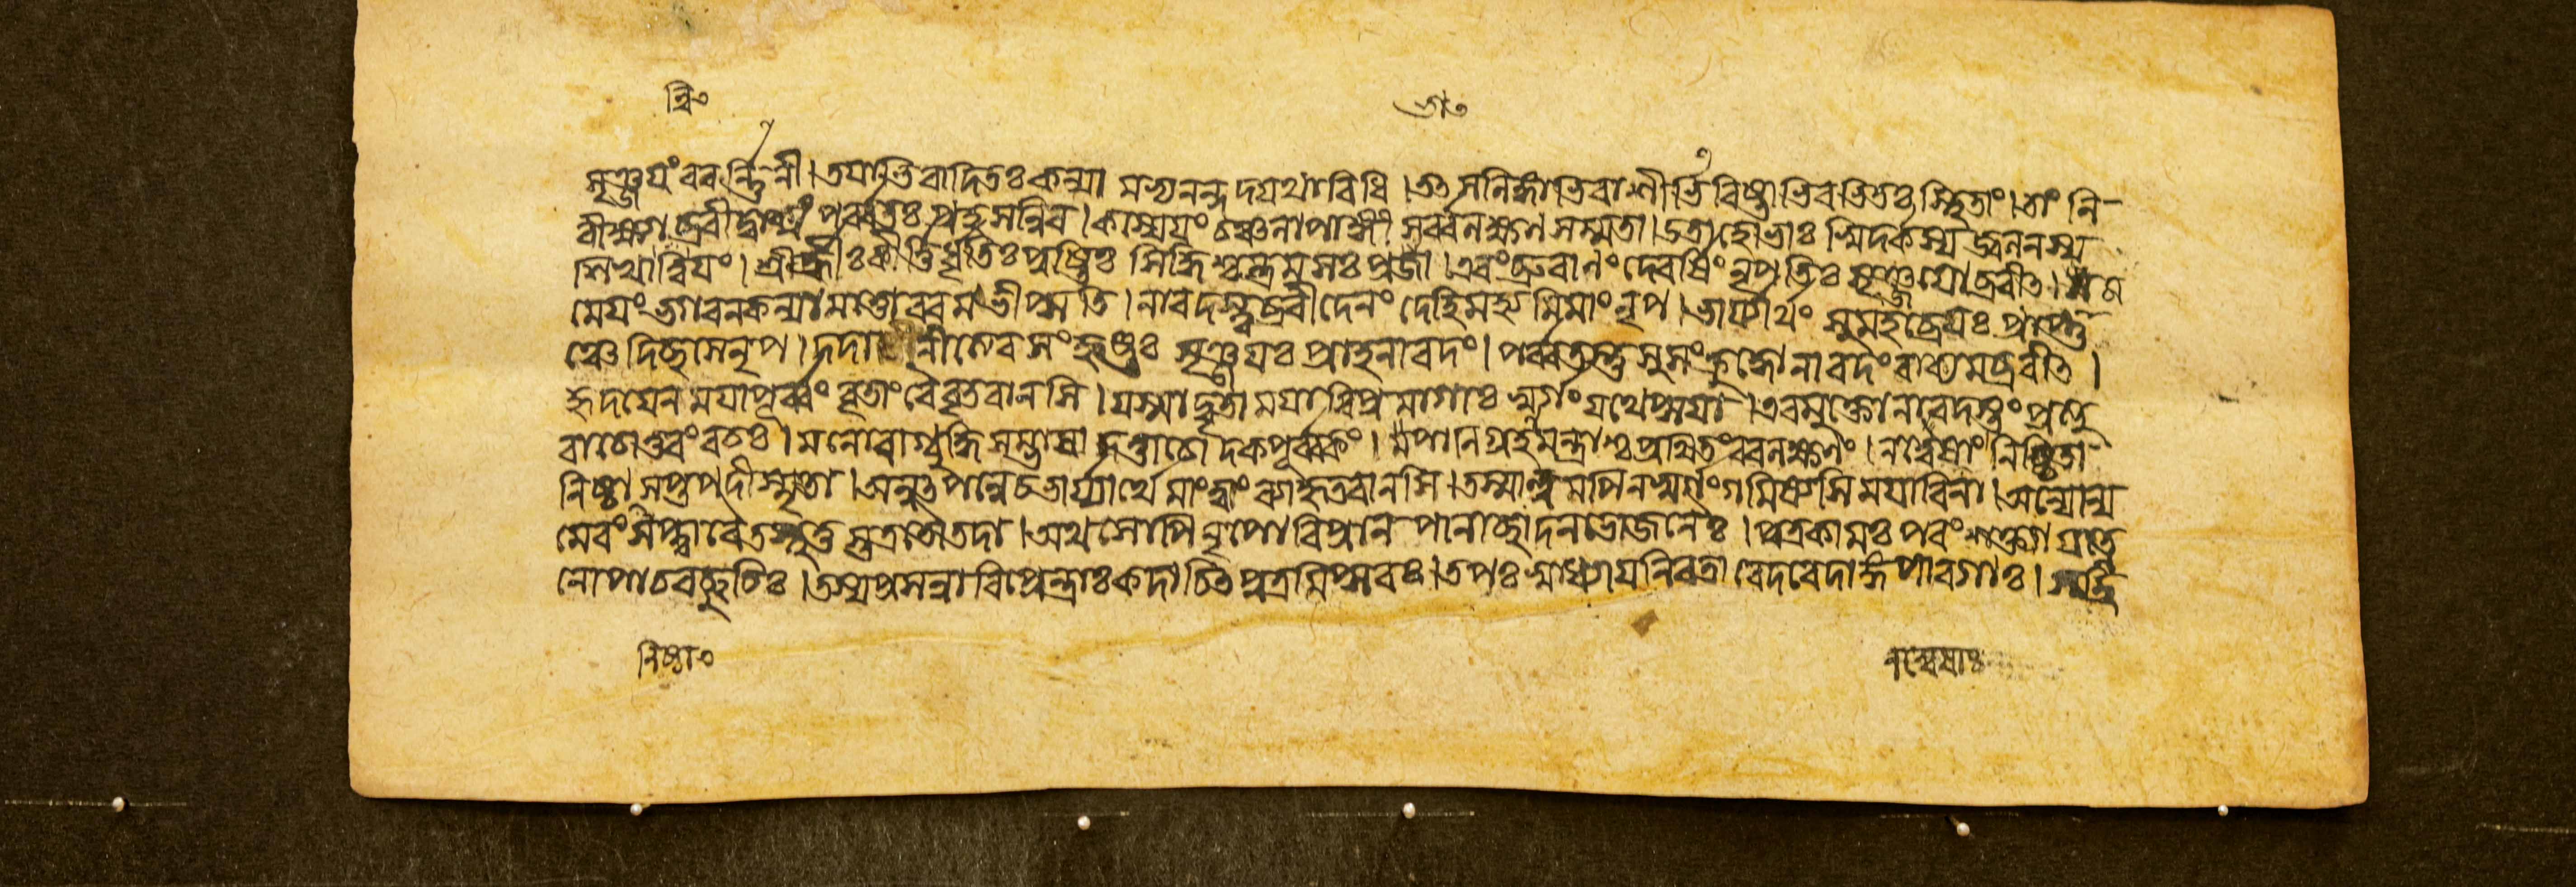 ত্রি॰ ভা॰
সৃঞ্জয়ং বরবর্ন্তিনী। তয়াভিবাদিতঃ কন্যা মভ্যনন্দদ্যথাবিধি। তৎ সলিঙ্গাভিরাশীর্ভি র্বিষ্ণাভিরভিতঃ স্থিতাং। তাং নি-
রীক্ষ্যাব্রবীদ্বাক্যং পর্ব্বতঃ প্রহসন্নিব। কস্যেয়ং চঞ্চলাপাঙ্গী সর্ব্বলক্ষণসম্মতা। উতাহো ভাঃ স্বিদর্কস্য জ্বলনস্য
শিখাত্বিয়ং। শ্রীর্হ্রীঃ কীর্ত্তির্ধৃতিঃ পুষ্টিঃ সিদ্ধিশ্চন্দ্রমসঃ প্রভা। এবং ব্রুবাণং দেবর্ষিং নৃপতিঃ সৃঞ্জয়োব্রবীত্। মমে
মেয়ং ভগবন্ কন্যা মত্তো বরমভীপ্সতি। নারদস্ত্বব্রবীদেনং দেহি মহ্যমিমাং নৃপ। ভার্য্যার্থং সুমহচ্ছ্রেয়ঃ প্রাপ্তু
ঞ্চেদিচ্ছসে নৃপ। দদানীত্যেব সংহৃষ্টঃ সৃঞ্জয়ঃ প্রাহ নারদং। পর্ব্বতস্তু সুসংক্রুদ্ধো নারদং বাক্যমব্রবীত্।
হৃদয়েন ময়া পূর্ব্বং বৃতাং বৈ বৃতবানসি। যস্মাদ্বৃতা ময়া বিপ্র মাগাঃ স্বর্গং যথেপ্সয়া। এবমুক্তো নারদস্তং প্রত্যু
বাচোত্তরং বচঃ। মনোবাগ্বুদ্ধিসম্ভাষা দত্তাচোদকপূর্ব্বকং। পাণিগ্রহমন্ত্রাশ্চ প্রথিতং বরলক্ষণং। নত্বেষাং নিশ্চিতা
নিষ্ঠা সপ্তপদী স্মৃতা। অনুৎপন্নে চ ভার্য্যার্থে মাং ত্বাং ব্যাহৃতবানসি। তস্মাত্ত্বমপি ন স্বর্গং গমিষ্যসি ময়া বিনা। অন্যোন্য
মেবং শপ্ত্বা বৈ তস্থতুস্তত্র তৌ তদা। অথ সোপি নৃপো বিপ্রান্ পানাচ্ছাদনভোজনৈঃ। পুত্রকামঃ পরং শক্ত্যা যত্নে
নোপাচরচ্ছুচিঃ। তস্য প্রসন্না বিপ্রেন্দ্রাঃ কদাচিত্ পুত্রমীপ্সবঃ। তপঃ স্বাধ্যায়নিরতা বেদবেদাঙ্গপারগাঃ।
নিষ্ঠা॰ নত্বেষাং